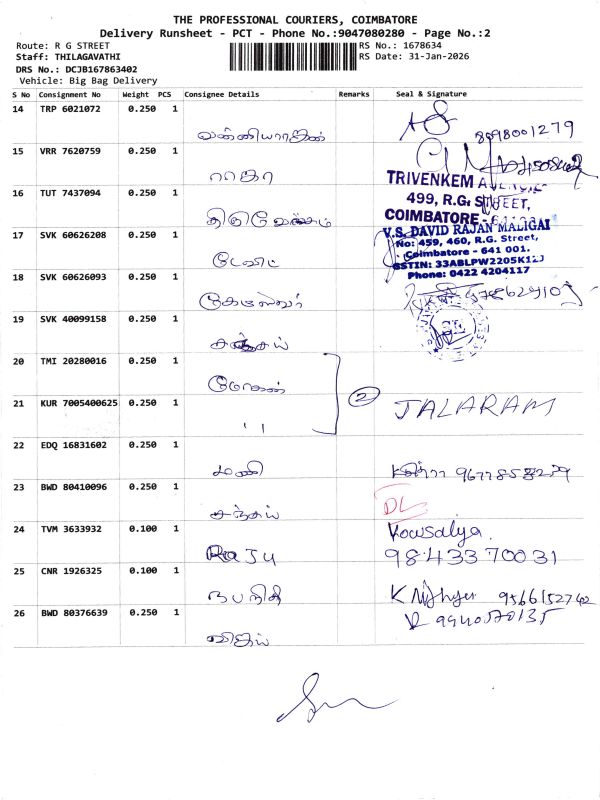 THE PROFESSIONAL COURIERS, COIMBATORE
Delivery Runsheet - PCT - Phone No.:9047080280 - Page No.:2
Route: R G STREET
Staff: THILAGAVATHI
DRS No.: DCJB167863402
Vehicle: Big Bag Delivery
RS No.: 1678634
RS Date: 31-Jan-2026
S No Consignment No Weight PCS Consignee Details Remarks Seal & Signature
14 TRP 6021072 0.250 1
8098001279
15 VRR 7620759 0.250 1
ராஜா
16 TUT 7437094 0.250 1
TRIVENKEM
499, R.G. STREET,
COIMBATORE -
17 SVK 60626208 0.250 1
டேவிட்
V.S. DAVID RAJAN MALIGAI
No: 459, 460, R.G. Street,
Coimbatore - 641 001.
GSTIN: 33ABLPW2205K1
Phone: 0422 4204117
18 SVK 60626093 0.250 1
19 SVK 40099158 0.250 1
சஞ்சய்
20 TMI 20280016 0.250 1
மோகன்
21 KUR 7005400625 0.250 1
" 2 JALARAM
22 EDQ 16831602 0.250 1
மணி
23 BWD 80410096 0.250 1
சஞ்சய்
DL
24 TVM 3633932 0.100 1
Raju
Kowsalya.
98433 70031
25 CNR 1926325 0.100 1
நபநிதி
K 9566152742
26 BWD 80376639 0.250 1
விஜய்
9940570135